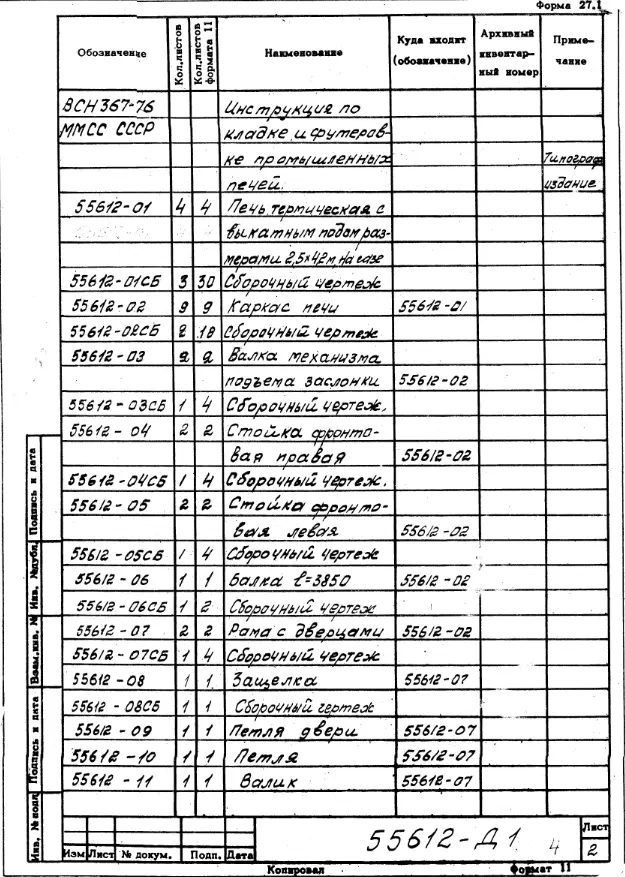 Форма 27.1
Обозначение Кол.листов Кол.листов формата 11 Наименование Куда входит (обозначение) Архивный инвентарный номер Примечание
ВСН 367-76 Инструкция по
ММСС СССР кладке и футеров-
ке промышленных Типограф.
печей. издание
55612-01 4 4 Печь термическая с
выкатным подом раз-
мерами 2,5×4,2м на газе
55612-01СБ 3 30 Сборочный чертеж
55612-02 9 9 Каркас печи 55612-01
55612-02СБ 2 18 Сборочный чертеж
55612-03 2 2 Балка механизма
подъема заслонки 55612-02
55612-03СБ 1 4 Сборочный чертеж.
55612-04 2 2 Стойка фронто-
вая правая 55612-02
55612-04СБ 1 4 Сборочный чертеж.
55612-05 2 2 Стойка фронто-
вая левая 55612-02
55612-05СБ 1 4 Сборочный чертеж
55612-06 1 1 Балка ℓ=3850 55612-02
55612-06СБ 1 2 Сборочный чертеж
55612-07 2 2 Рама с дверцами 55612-02
55612-07СБ 1 4 Сборочный чертеж
55612-08 1 1 Защелка 55612-07
55612-08СБ 1 1 Сборочный чертеж
55612-09 1 1 Петля двери 55612-07
55612-10 1 1 Петля 55612-07
55612-11 1 1 Валик 55612-07
Инв. № подл. Подпись и дата Взам.инв. № Инв. №дубл. Подпись и дата
55612-Д1 4
Лист
2
Изм Лист № докум. Подп. Дата
Копировал Формат 11